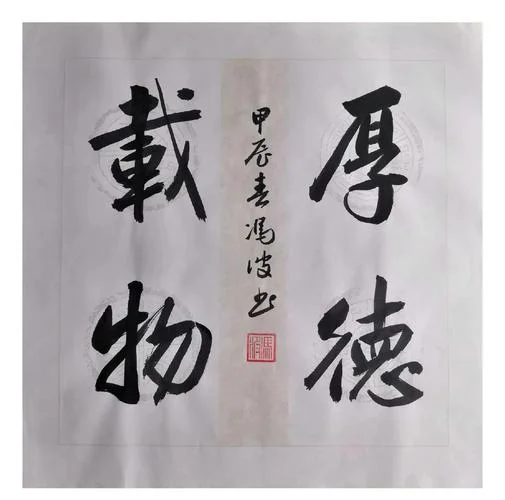 厚德
載物
甲辰春馮波书